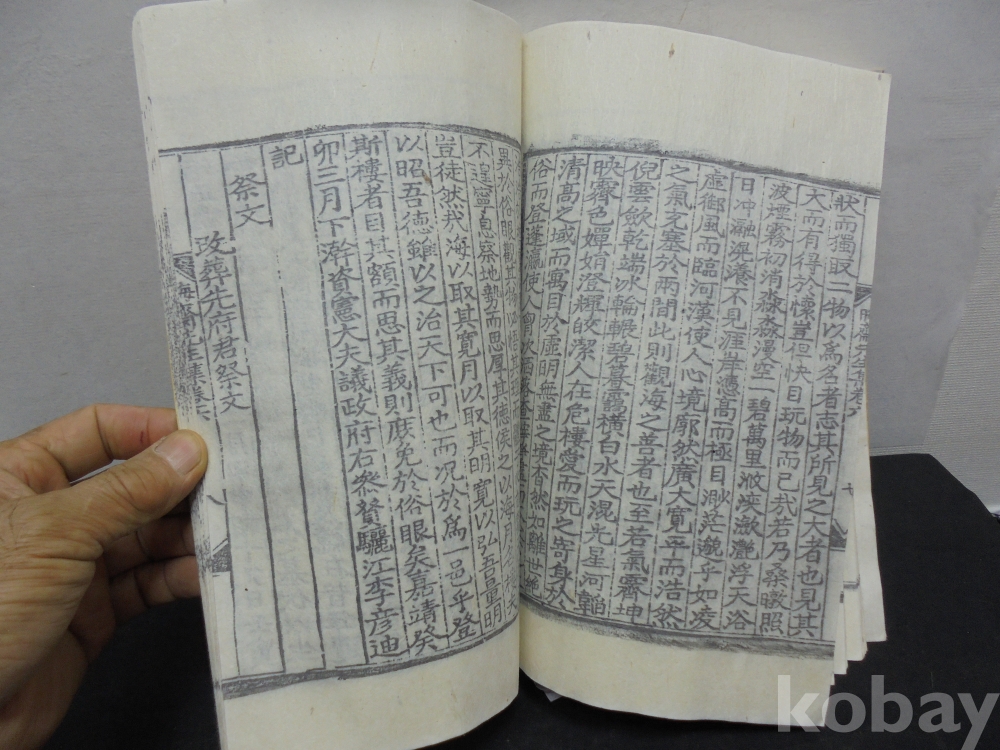 狀而獨取二物以爲名者志其所見之大者也見其
大而有得於懷豈但快目玩物而已哉若乃桑暾照
波煙霧初消淼淼漫空一碧萬里
日沖瀜滉瀁不見涯岸憑高而極目渺茫邈乎如凌
虛御風而臨河漢使人心境廓然廣大寬平而浩然
之氣充塞於兩間此則觀海之善者也至若氣霽坤
倪雲斂乾端冰輪輾碧暮靄橫白水天混光星河韜
映霽色嬋娟澄輝皎潔人在危樓愛而玩之寄身於
清高之域而寓目於虛明無盡之境杳然如離世絶
俗而登蓬瀛使人胷次
異於俗眼觀其物以
不遑寧息察地勢而思厚其德侯之以海月
豈徒然哉海以取其寬月以取其明寬以弘吾量明
以昭吾德雖以之治天下可也而况於爲一邑乎登
斯樓者目其額而思其義則庶免於俗眼矣嘉靖癸
卯三月下澣資憲大夫議政府右參贊驪江李彦迪
記
祭文
改葬先府君祭文
八
kobay